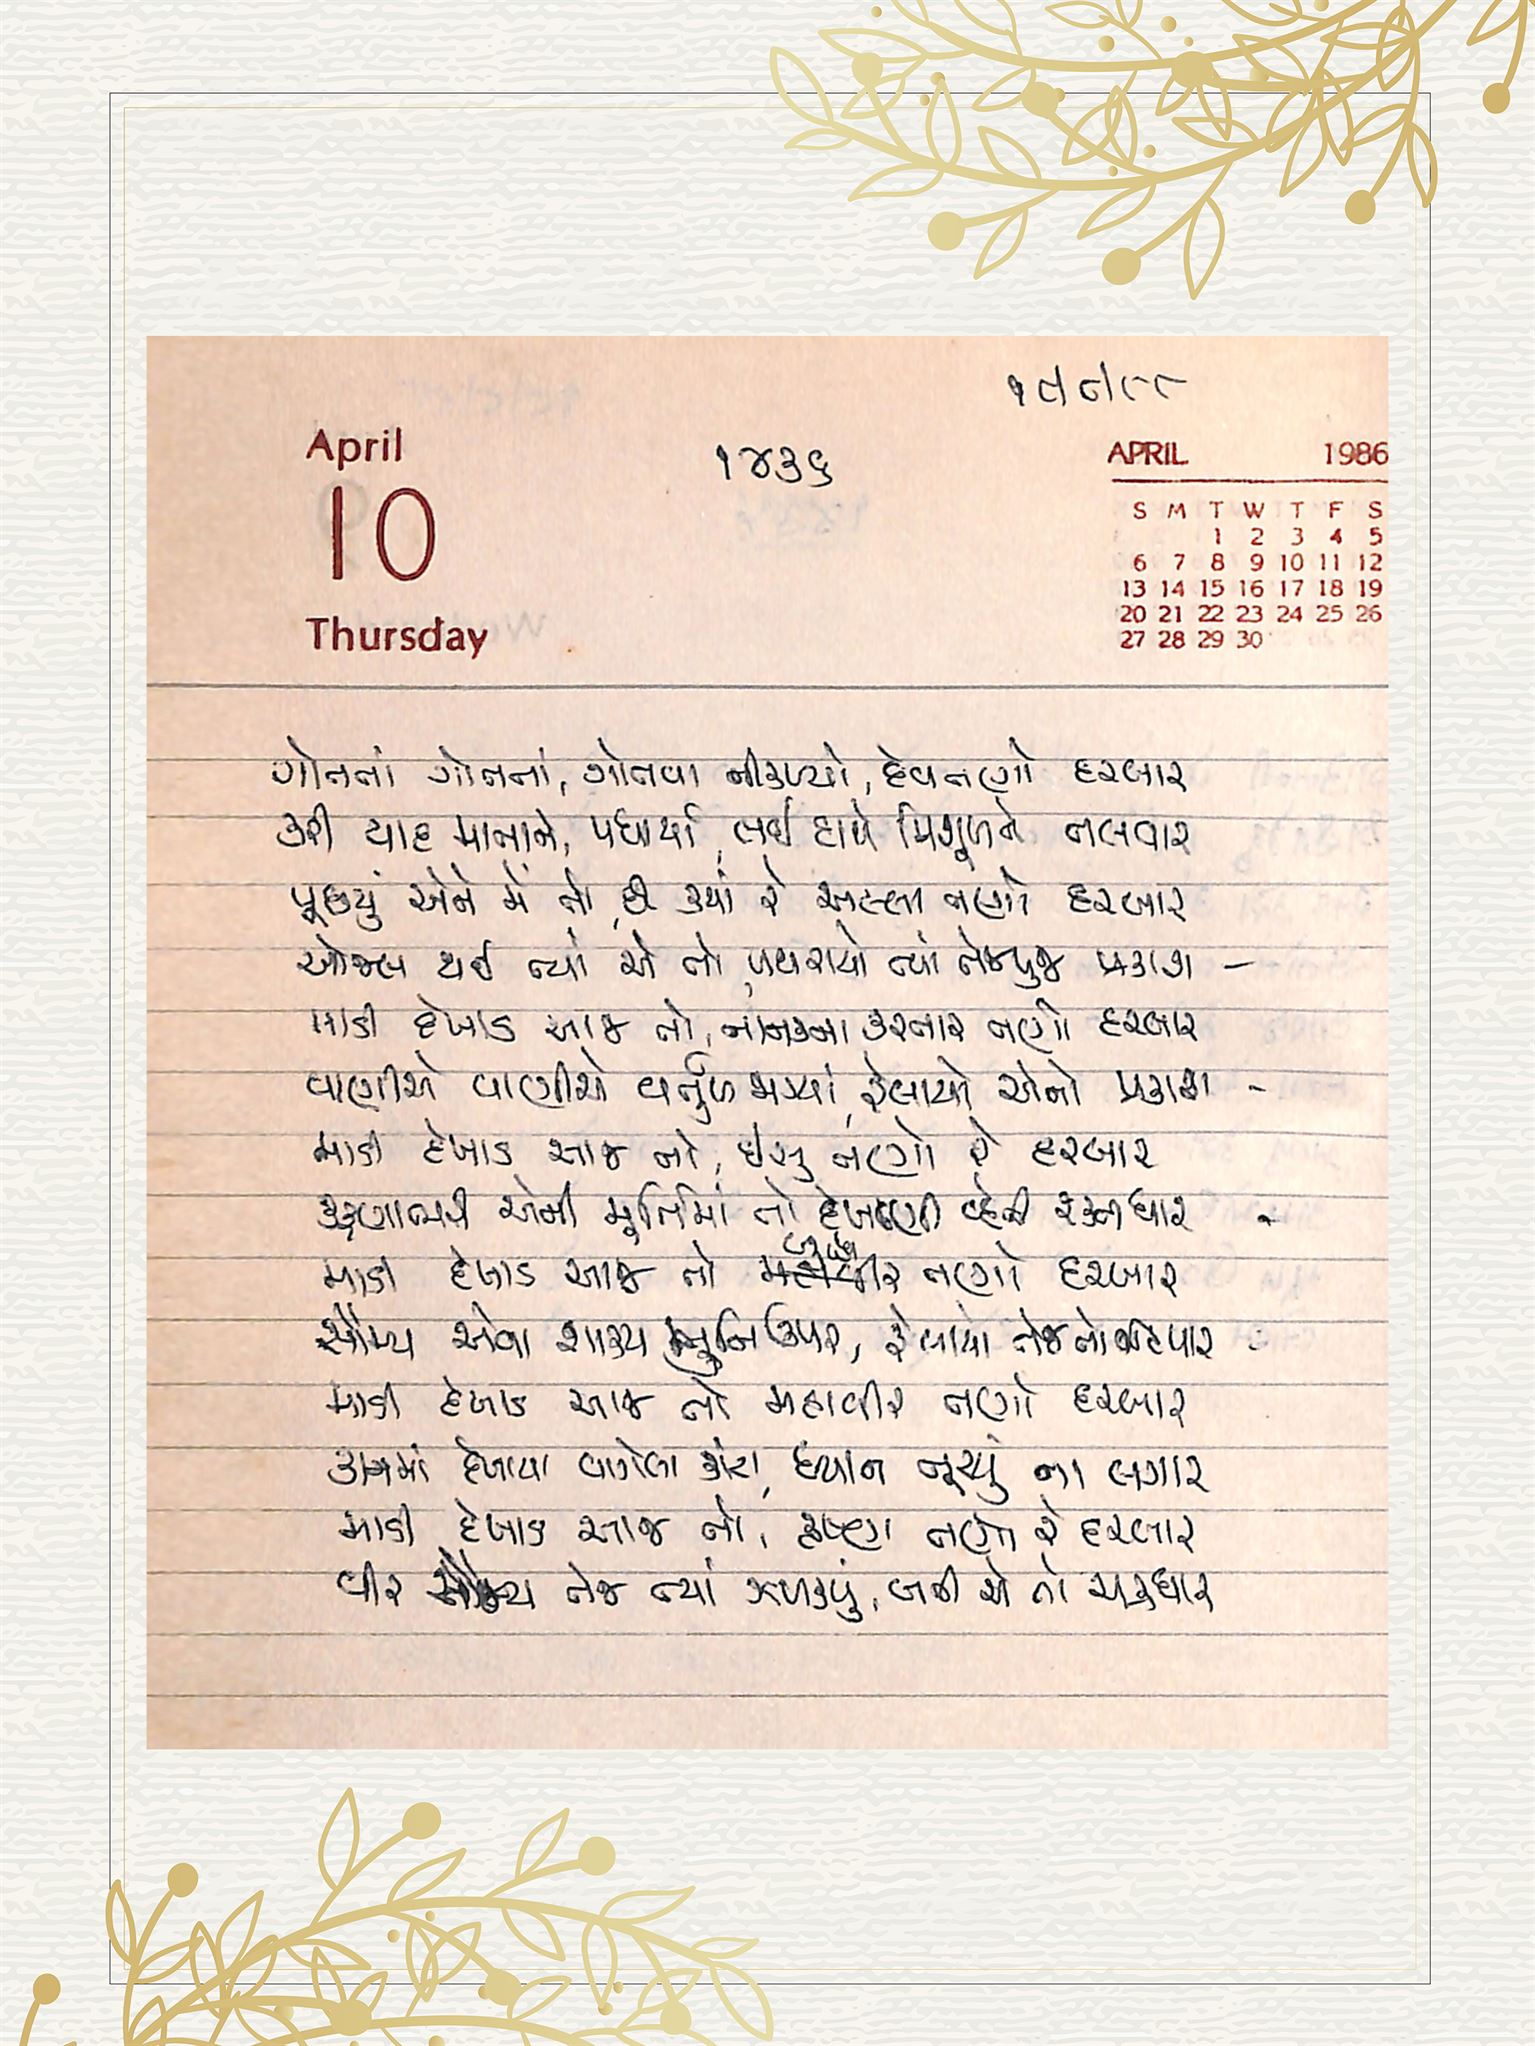 ૧૮/૮/૮૮
April
10
Thursday
૧૪૩૬
APRIL 1986
S M T W T F S
1 2 3 4 5
6 7 8 9 10 11 12
13 14 15 16 17 18 19
20 21 22 23 24 25 26
27 28 29 30
ગોતતાં ગોતતાં, ગોતવા નીકળ્યો, દેવતણો દરબાર
કરી યાદ માતાને, પધાર્યા, લઈ હાથે ત્રિશૂળને તલવાર
પૂછયું એને મેં તો, છે ક્યાં રે અલ્લા તણો દરબાર
ઓજલ થઈ ત્યાં એ તો, પથરાયો ત્યાં તેજપુંજ પ્રકાશ –
માડી દેખાડ આજ તો, નાનકના કરનાર તણો દરબાર
વાણીએ વાણીએ વર્તુળ જાગ્યાં, ફેલાયો એનો પ્રકાશ –
માડી દેખાડ આજ તો, ઈસુ તણો રે દરબાર
કરૂણાભરી એની મૂર્તિમાં તો દેખાણી વ્હેતી રક્તધાર -
માડી દેખાડ આજ તો બુદ્ધ તણો દરબાર
સૌમ્ય એવા શાક્ય મુનિ ઉપર, ફેલાયો તેજનો
માડી દેખાડ આજ તો મહાવીર તણો દરબાર
કાનમાં દેખાયા વાગેલા કાંટા, ધ્યાન તૂટ્યું ના લગાર
માડી દેખાડ આજ તો, કૃષ્ણ તણો રે દરબાર
વીર તેજ ત્યાં ઝળક્યું, બની એ તો ચક્રધાર